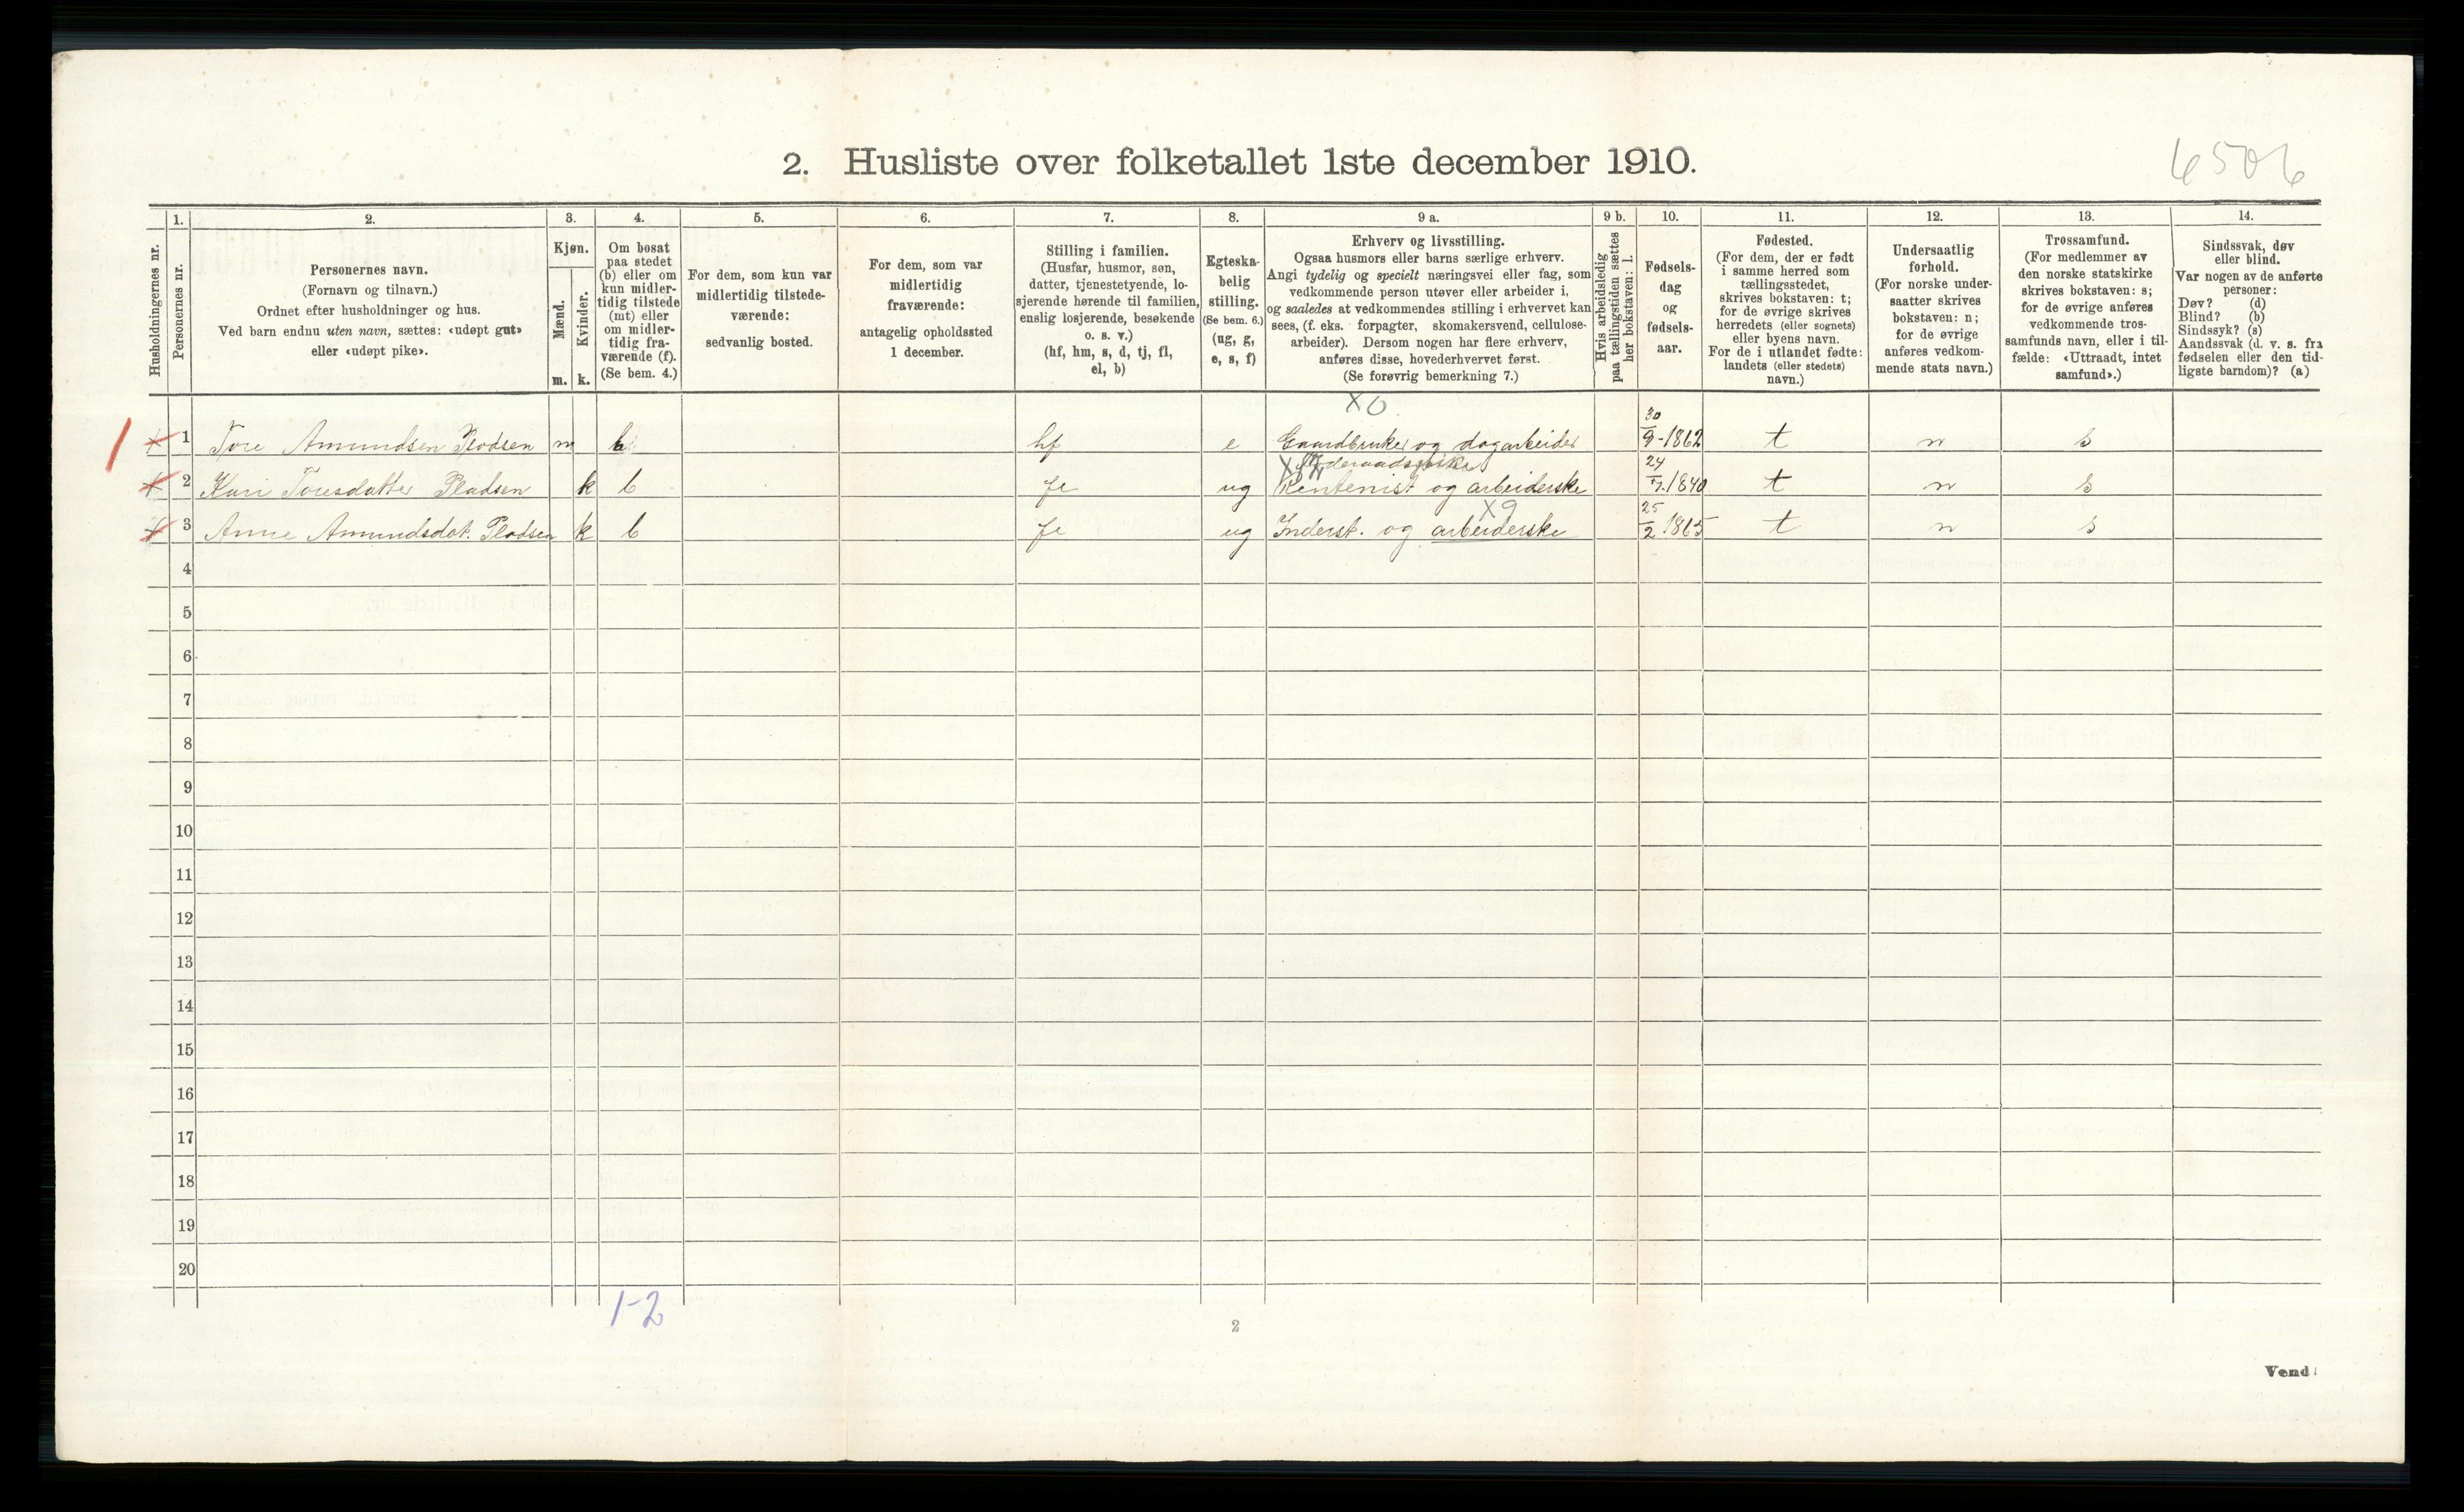 2. Husliste over folketallet 1ste december 1910.
6506
Husholdningernes nr.
1.
Personernes nr.
2.
Personernes navn.
(Fornavn og tilnavn.)
Ordnet efter husholdninger og hus.
Ved barn endnu uten navn, sættes: «udøpt gut»
eller «udøpt pike».
3.
Kjøn.
Mænd.
Kvinder.
m. k.
4.
Om bosat
paa stedet
(b) eller om
kun midler-
tidig tilstede
(mt) eller
om midler-
tidig fra-
værende (f).
(Se bem. 4.)
5.
For dem, som kun var
midlertidig tilstede-
værende:
sedvanlig bosted.
6.
For dem, som var
midlertidig
fraværende:
antagelig opholdssted
1 december.
7.
Stilling i familien.
(Husfar, husmor, søn,
datter, tjenestetyende, lo-
sjerende hørende til familien,
enslig losjerende, besøkende
o. s. v.)
(hf, hm, s, d, tj, fl,
el, b)
8.
Egteska-
belig
stilling.
(Se bem. 6.)
(ug, g,
e, s, f)
9 a.
Erhverv og livsstilling.
Ogsaa husmors eller barns særlige erhverv.
Angi tydelig og specielt næringsvei eller fag, som
vedkommende person utøver eller arbeider i,
og saaledes at vedkommendes stilling i erhvervet kan
sees, (f. eks. forpagter, skomakersvend, cellulose-
arbeider). Dersom nogen har flere erhverv,
anføres disse, hovederhvervet først.
(Se forøvrig bemerkning 7.)
9 b.
Hvis arbeidsledig
paa tællingstiden sættes
her bokstaven: l.
10.
Fødsels-
dag
og
fødsels-
aar.
11.
Fødested.
(For dem, der er født
i samme herred som
tællingsstedet,
skrives bokstaven: t;
for de øvrige skrives
herredets (eller sognets)
eller byens navn.
For de i utlandet fødte:
landets (eller stedets)
navn.)
12.
Undersaatlig
forhold.
(For norske under-
saatter skrives
bokstaven: n;
for de øvrige
anføres vedkom-
mende stats navn.)
13.
Trossamfund.
(For medlemmer av
den norske statskirke
skrives bokstaven: s;
for de øvrige anføres
vedkommende tros-
samfunds navn, eller i til-
fælde: «Uttraadt, intet
samfund».)
14.
Sindssvak, døv
eller blind.
Var nogen av de anførte
personer:
Døv? (d)
Blind? (b)
Sindssyk? (s)
Aandssvak (d. v. s. fra
fødselen eller den tid-
ligste barndom)? (a)
X0
1 1 Tore Amundsen Pladsen m b hf e Gaardbruker og dagarbeider 30/9-1862 t n s
2 Kari Toresdatter Pladsen k b fl ug Rentenist og arbeiderske 24/7.1840 t n s
X9
3 Anne Amundsdat. Pladsen k b fl ug Inderst. og arbeiderske 25/2.1865 t n s
4
5
6
7
8
9
10
11
12
13
14
15
16
17
18
19
20
1-2
2
Vend